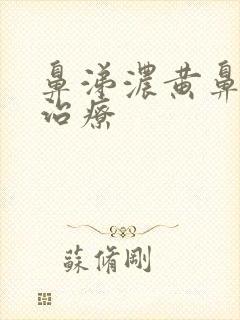 鼻涕濃黃鼻
治療
蘇脩剛